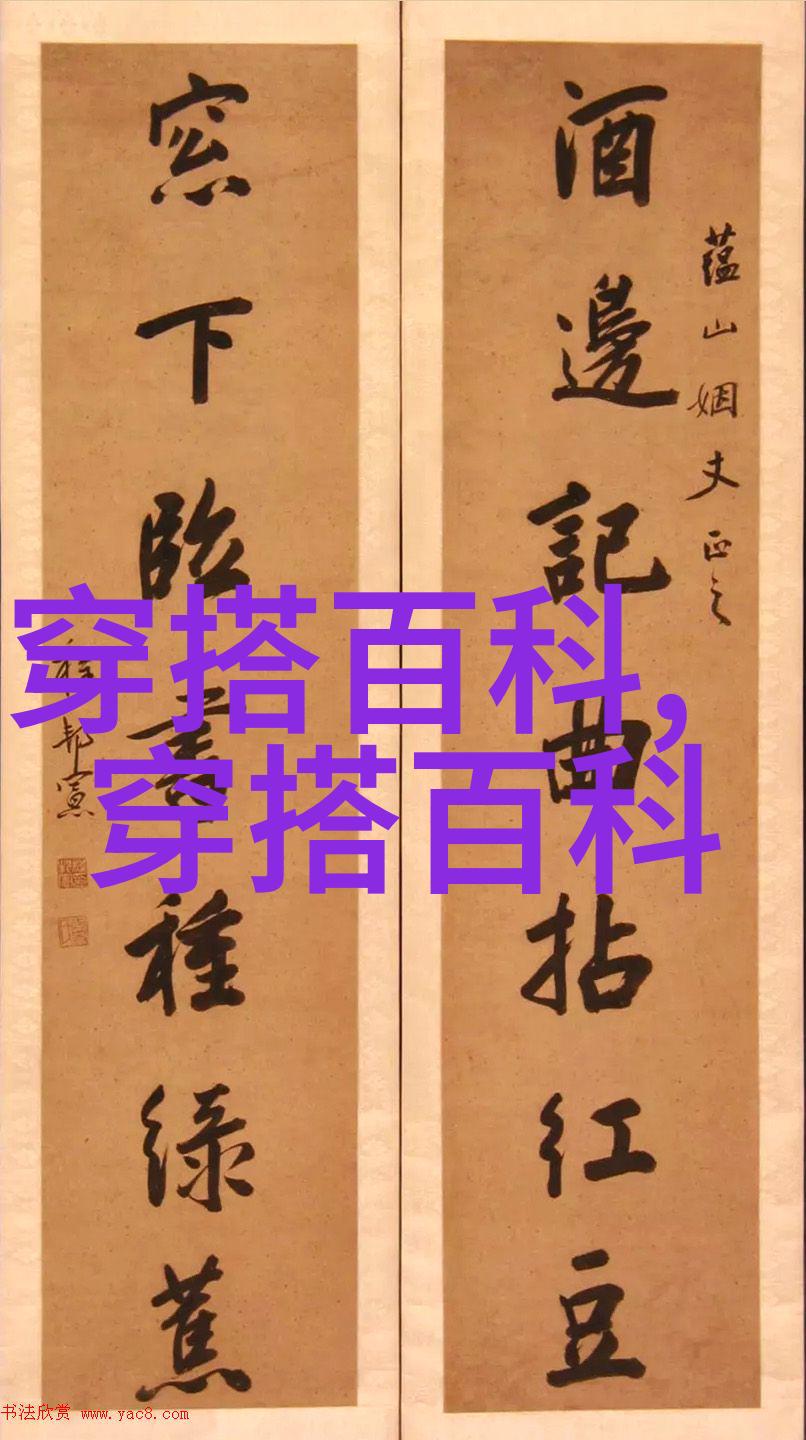 酒邊記曲拈紅豆
蕴山姻丈正之
窓下臨書種緑蕉
程邦憲
穿搭百科,
穿搭百科
书法欣赏 www.yac8.com